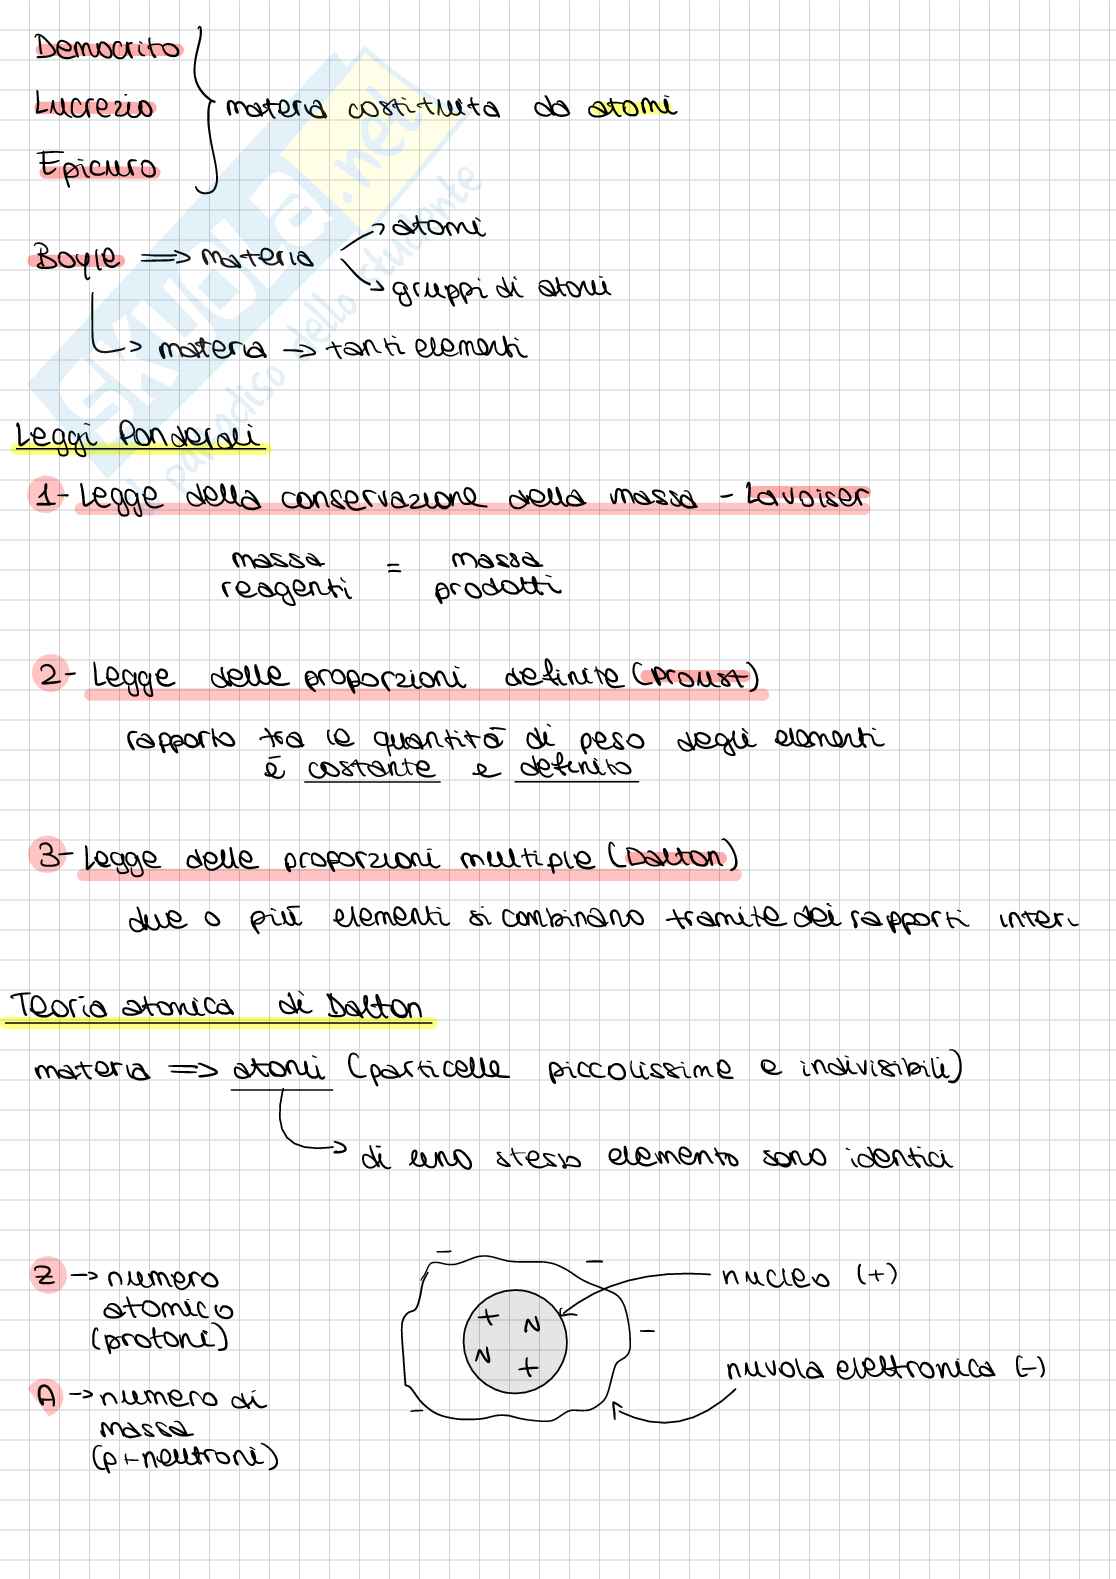 Democrito
Lucrezio
Epicuro
materia costituita da atomi
Boyle => materia
→ atomi
→ gruppi di atomi
→ materia → tanti elementi
Leggi Ponderali
1- Legge della conservazione della massa - Lavoiser
massa reagenti = massa prodotti
2- Legge delle proporzioni definite (Proust)
rapporto tra le quantità di peso degli elementi
è costante e definito
3- Legge delle proporzioni multiple (Dalton)
due o più elementi si combinano tramite dei rapporti interi
Teoria atomica di Dalton
materia => atomi (particelle piccolissime e indivisibili)
→ di uno stesso elemento sono identici
Z → numero
atomico
(protoni)
A → numero di
massa
(p+neutroni)
+ N
N +
- - - -
nucleo (+)
nuvola elettronica (-)
SKUOLA.net
il paradiso dello studente